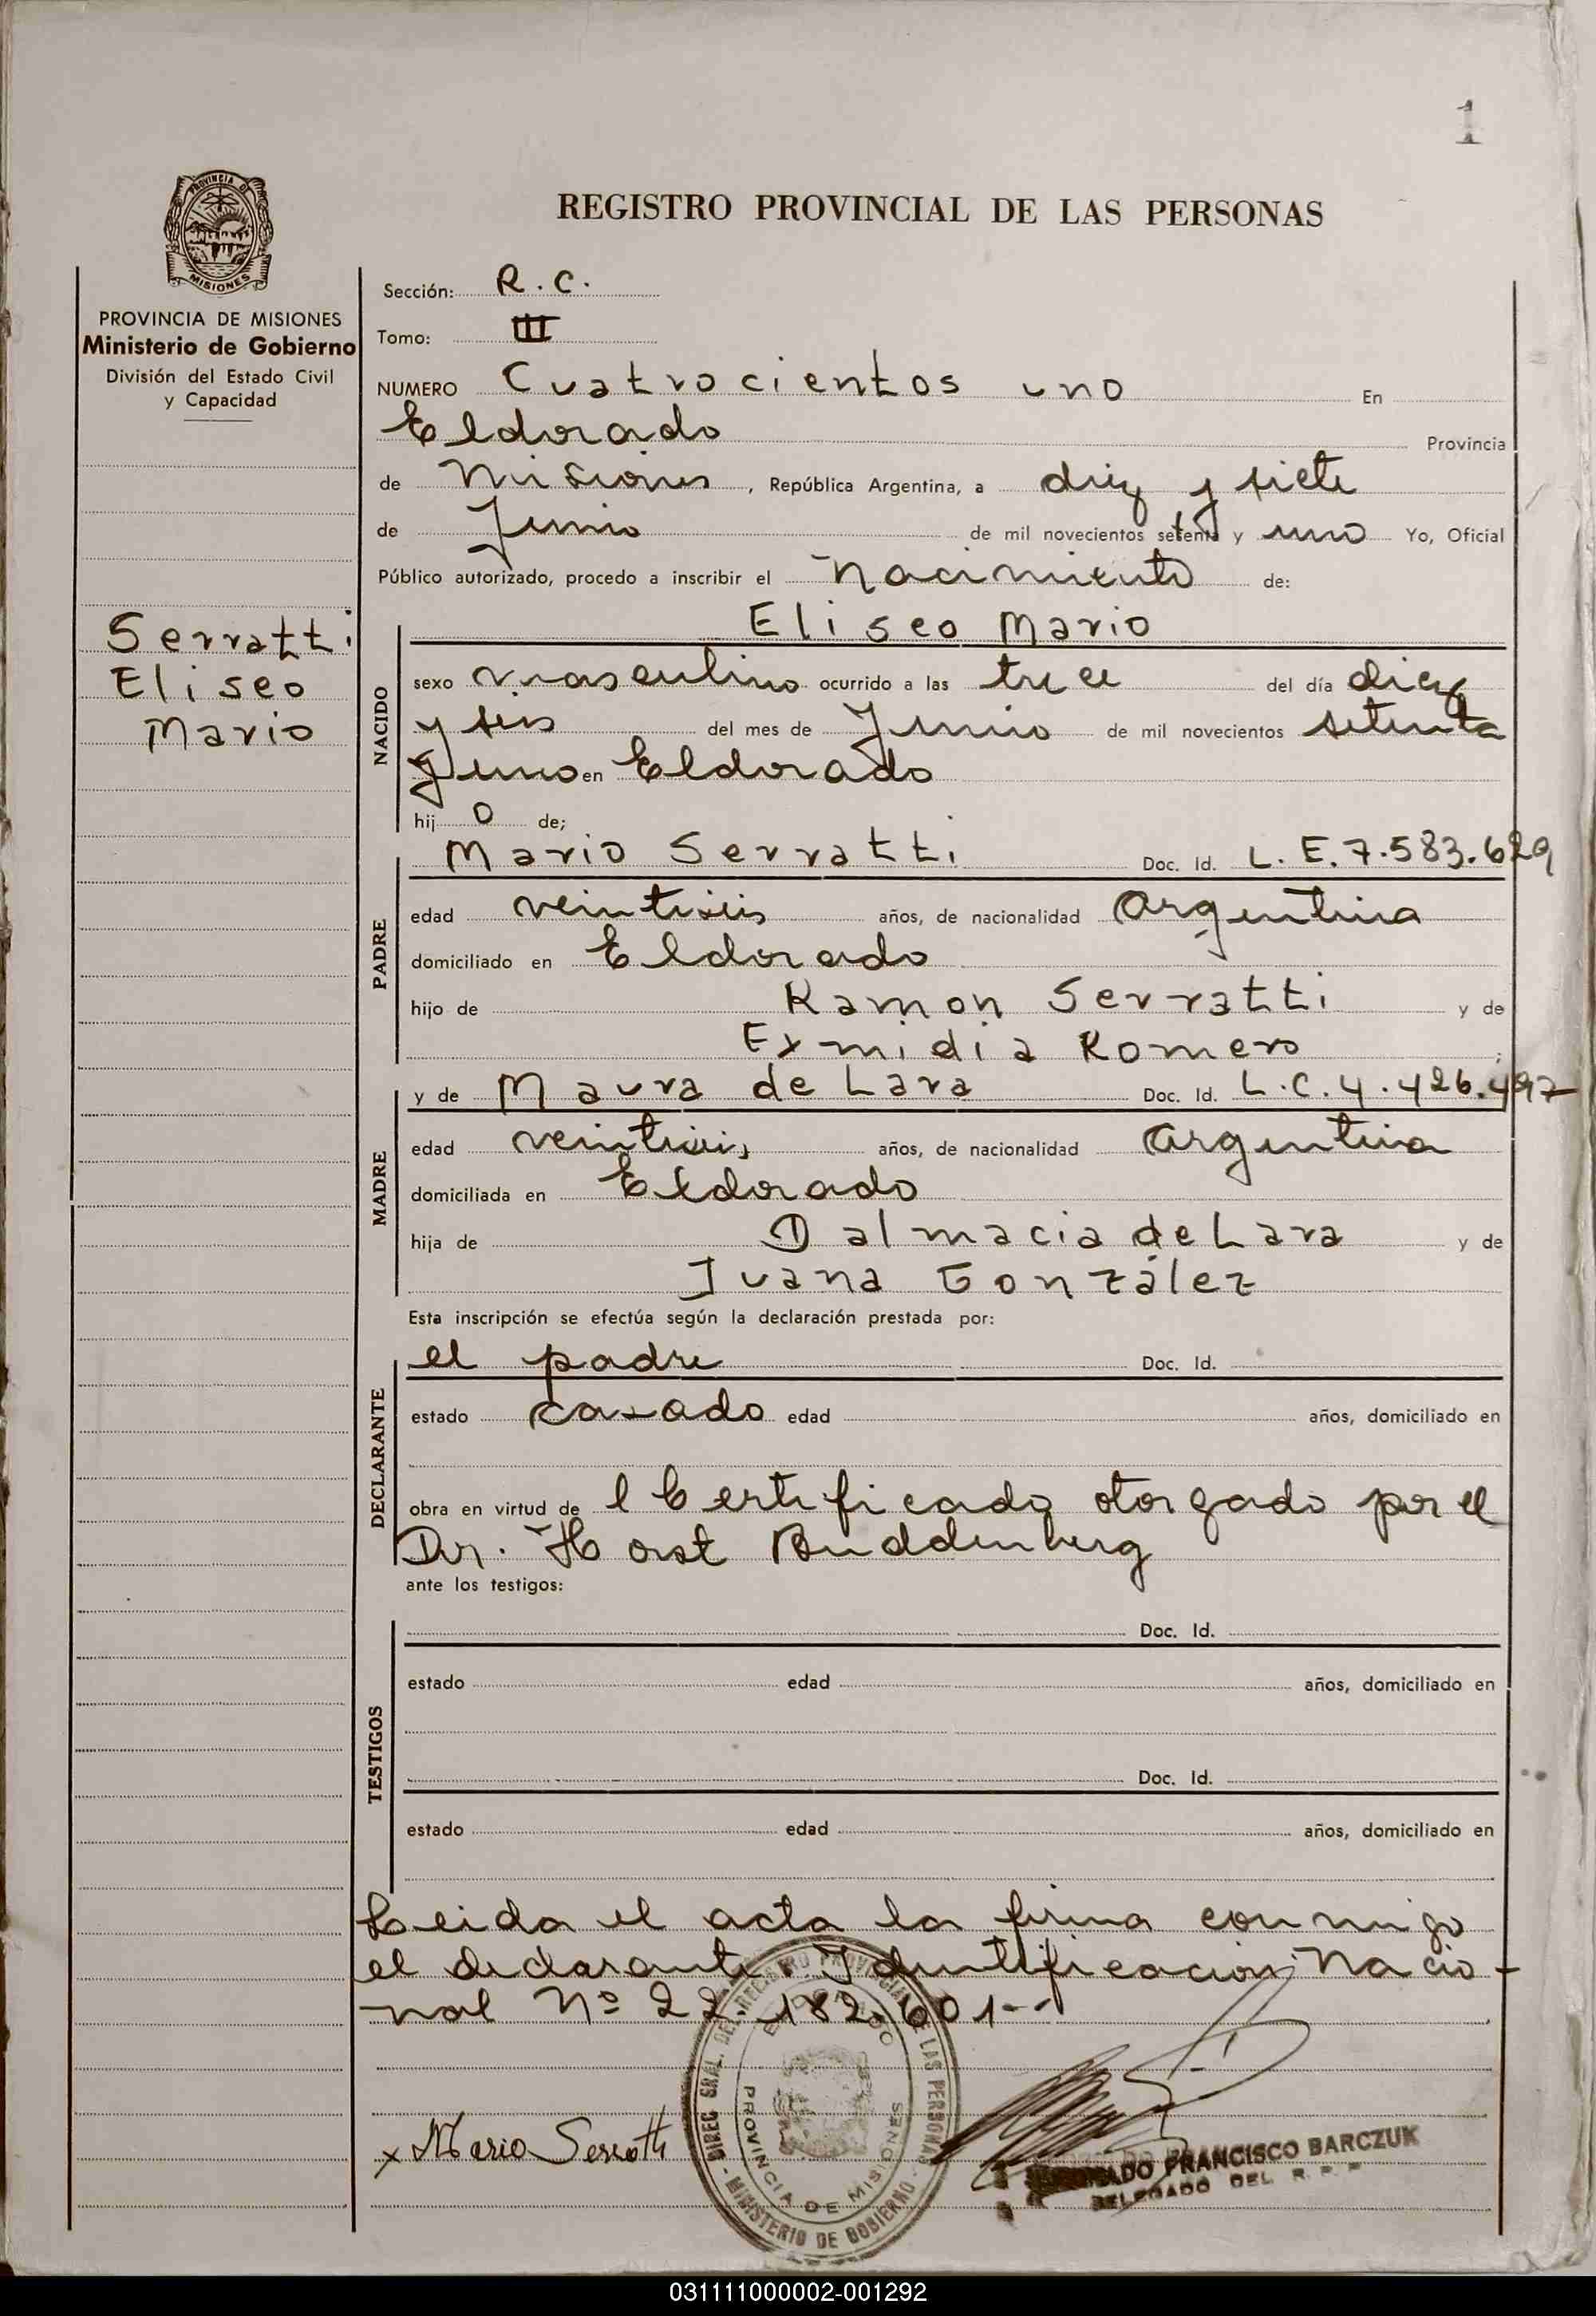 1
PROVINCIA DE
MISIONES
REGISTRO PROVINCIAL DE LAS PERSONAS
PROVINCIA DE MISIONES
Ministerio de Gobierno
División del Estado Civil
y Capacidad
Serratti
Eliseo
Mario
Sección: R. C.
Tomo: III
NUMERO Cuatrocientos uno En
Eldorado Provincia
de Misiones, República Argentina, a diez y siete
de Junio de mil novecientos setenta y uno Yo, Oficial
Público autorizado, procedo a inscribir el Nacimiento de:
NACIDO
Eliseo Mario
sexo masculino ocurrido a las trece del día diez
y seis del mes de Junio de mil novecientos setenta
y uno en Eldorado
hijo de;
PADRE
Mario Serratti Doc. Id. L. E. 7.583.629
edad veintiseis años, de nacionalidad Argentina
domiciliado en Eldorado
hijo de Ramon Serratti y de
Exmidia Romero
MADRE
y de Maura de Lara Doc. Id. L. C. 4.426.497
edad veintiseis años, de nacionalidad Argentina
domiciliada en Eldorado
hija de Dalmacia de Lara y de
Juana González
Esta inscripción se efectúa según la declaración prestada por:
DECLARANTE
el padre Doc. Id.
estado casado edad años, domiciliado en
obra en virtud de l Certificado otorgado por el
Dr. Horst Buddenberg
ante los testigos:
TESTIGOS
Doc. Id.
estado edad años, domiciliado en
Doc. Id.
estado edad años, domiciliado en
Leida el acta la firma conmigo
el declarante. Identificacion Nacio-
nal Nº 22.182.601--
x Mario Serratti
DIREC. GRAL. DEL REGISTRO PROVINCIAL DE LAS PERSONAS
PROVINCIA DE MISIONES
- MINISTERIO DE GOBIERNO -
FRANCISCO BARCZUK
DELEGADO DEL R. P. P.
031111000002-001292